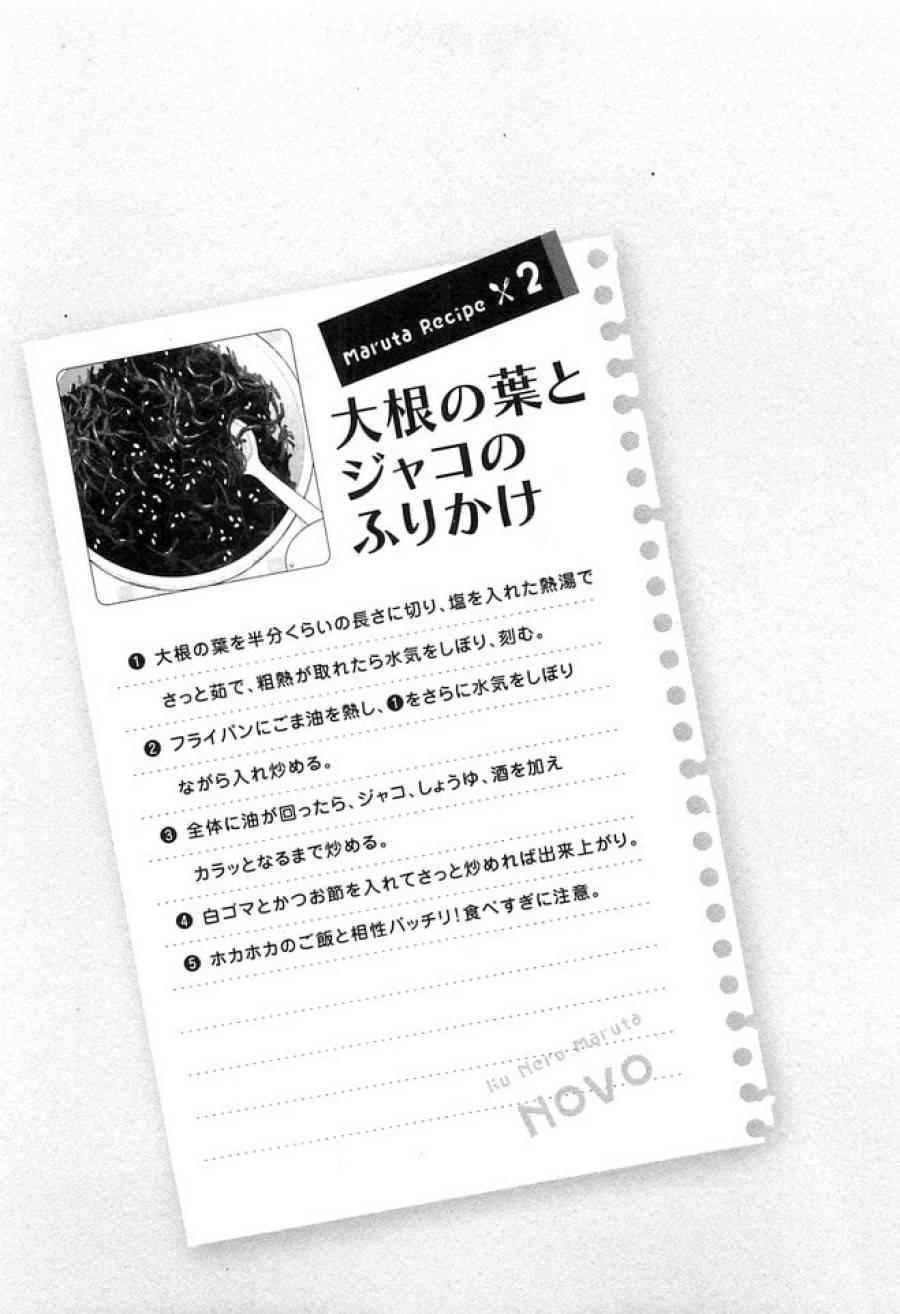 Maruta Recipe 2
大根の葉と
ジャコの
ふりかけ
❶ 大根の葉を半分くらいの長さに切り、塩を入れた熱湯で
さっと茹で、粗熱が取れたら水気をしぼり、刻む。
❷ フライパンにごま油を熱し、❶をさらに水気をしぼり
ながら入れ炒める。
❸ 全体に油が回ったら、ジャコ、しょうゆ、酒を加え
カラッとなるまで炒める。
❹ 白ゴマとかつお節を入れてさっと炒めれば出来上がり。
❺ ホカホカのご飯と相性バッチリ!食べすぎに注意。
Ku Neru Maruta
NOVO